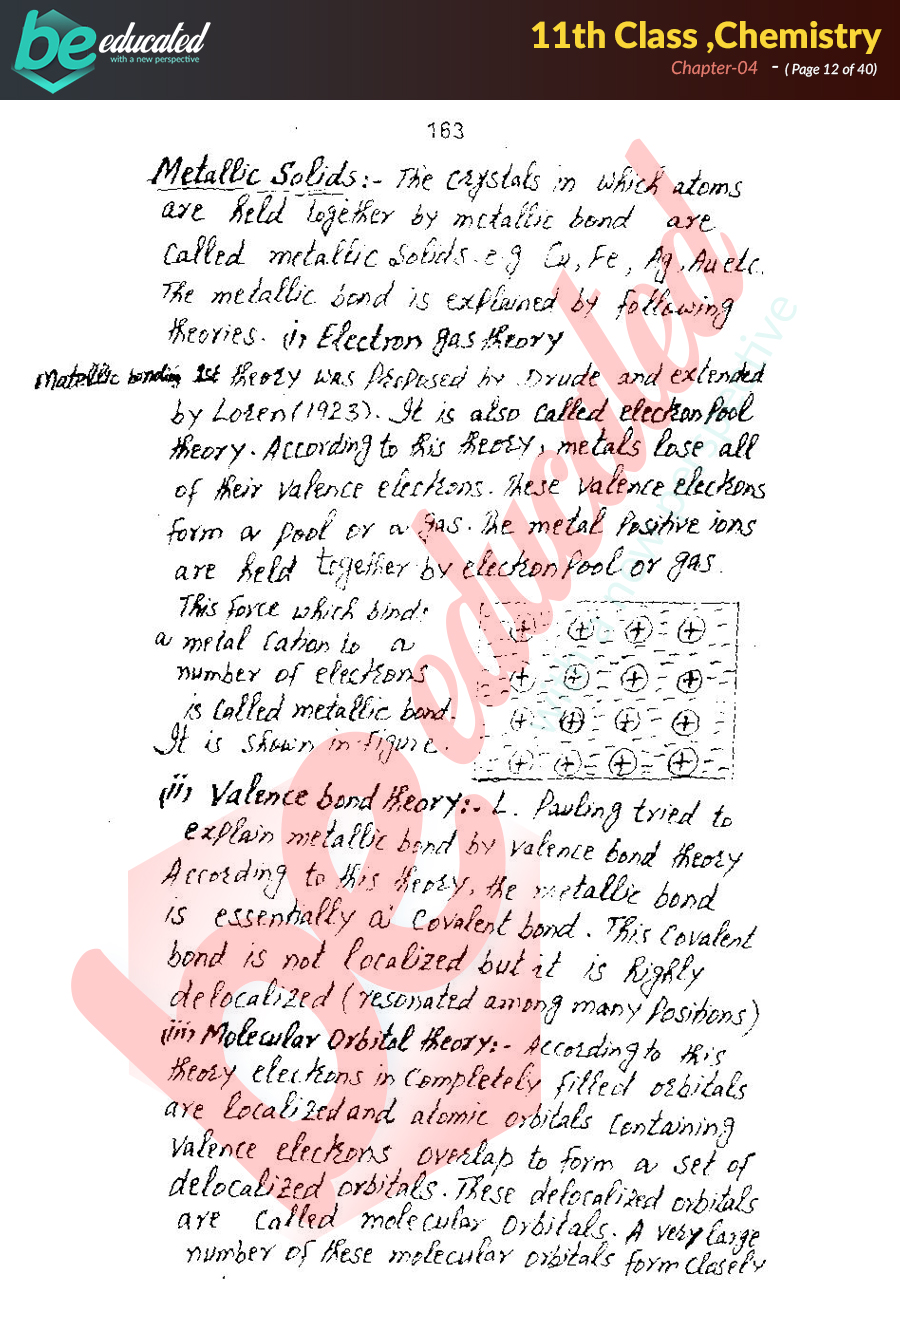 be educated
with a new perspective
11th Class ,Chemistry
Chapter-04 - ( Page 12 of 40)
163
Metallic Solids:- The crystals in which atoms
are held together by metallic bond are
called metallic solids. e.g Cu, Fe, Ag, Au etc.
The metallic bond is explained by following
theories. (i) Electron gas theory
Matellic bonding 1st theory was proposed by Drude and extended
by Loren (1923). It is also called electron Pool
theory. According to this theory, metals lose all
of their valence electrons. These valence electrons
form a pool or a gas. The metal Positive ions
are held together by electron Pool or gas.
This force which binds
a metal cation to a
number of electrons
is called metallic bond.
It is shown in figure.
+ + + +
+ + + +
+ + + +
+ + + +
(ii) Valence bond theory:- L. Pauling tried to
explain metallic bond by valence bond theory
According to this theory, the metallic bond
is essentially a covalent bond. This covalent
bond is not localized but it is highly
delocalized (resonated among many Positions)
(iii) Molecular Orbital theory:- According to this
theory electrons in completely filled orbitals
are localized and atomic orbitals containing
valence electrons overlap to form a set of
delocalized orbitals. These delocalized orbitals
are called molecular orbitals. A very large
number of these molecular orbitals form closely
be educated
with a new perspective